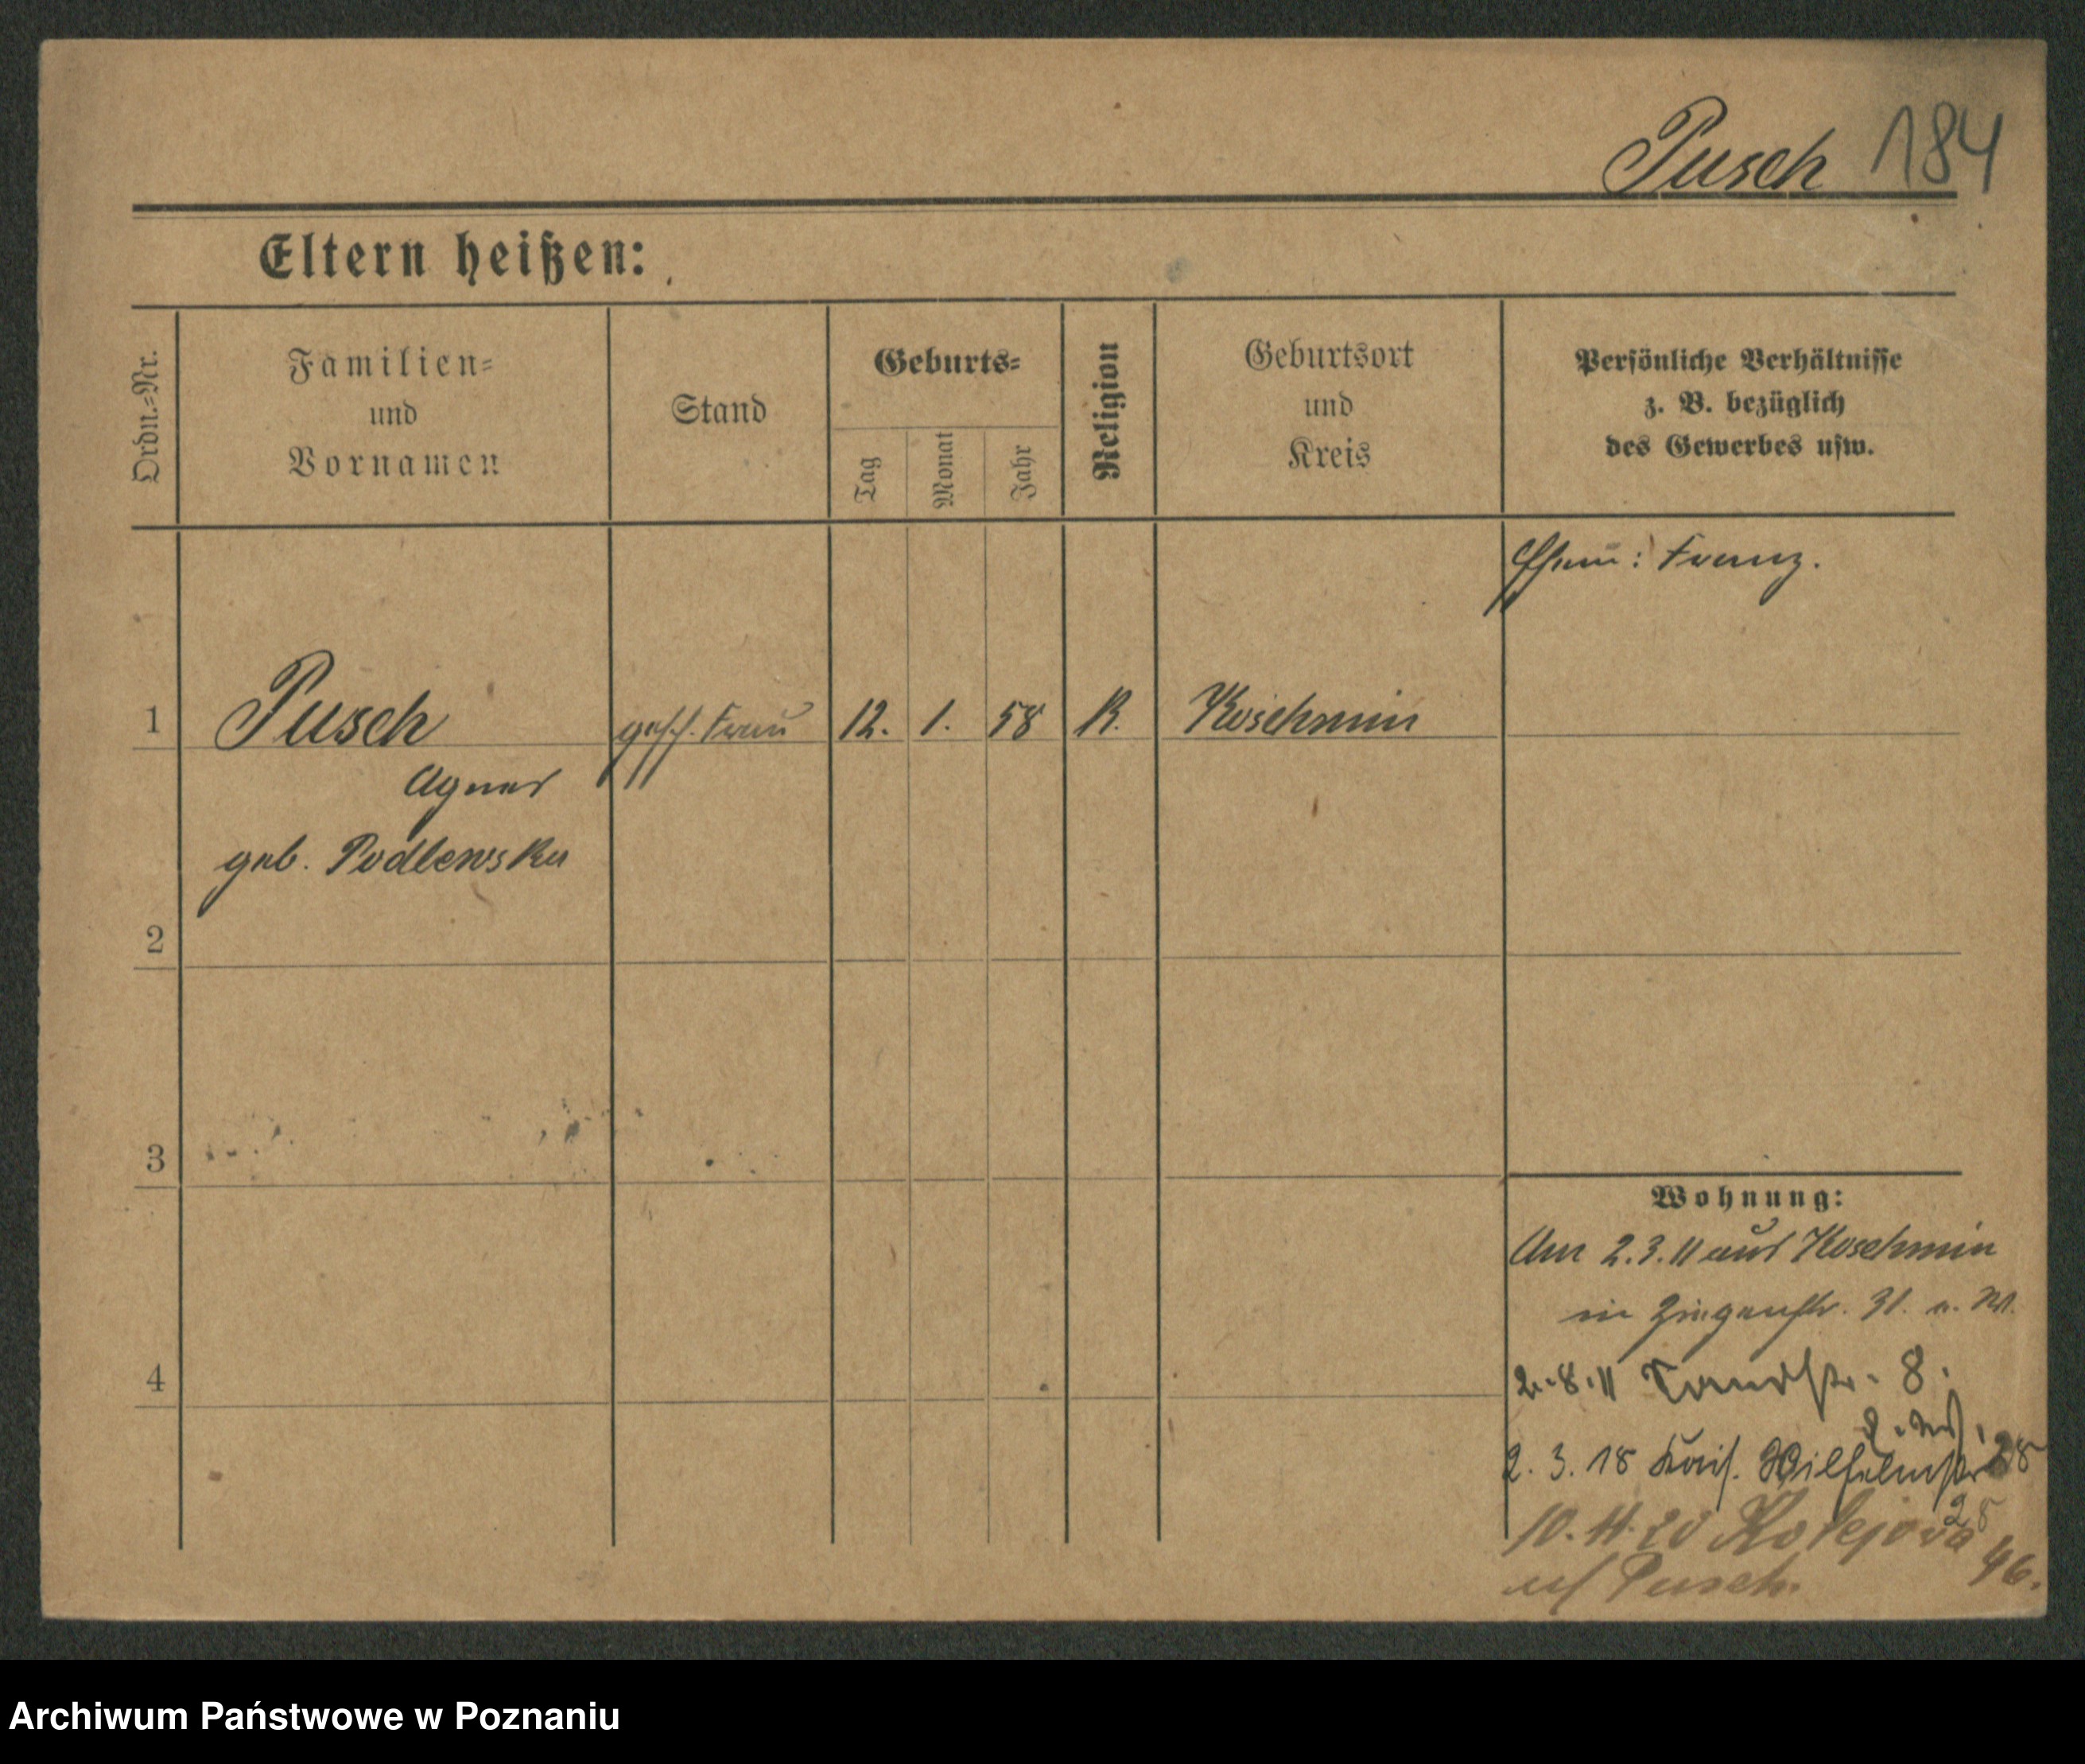 Pusch 184
Eltern heißen:
Ordn.-Nr.
Familien-
und
Vornamen
Stand
Geburts-
Tag
Monat
Jahr
Religion
Geburtsort
und
Kreis
Persönliche Verhältnisse
z. B. bezüglich
des Gewerbes usw.
Ehem: Franz.
1 Pusch gesch. Frau 12. 1. 58 K. Koschmin
Agnes
geb. Podlewska
2
3
Wohnung:
Am 2.3.11 aus Koschmin
in Ziegenstr. 31. b. M.
4
2.8.11 Sandstr. 8.
2. 3. 18 Kais. Wilhelmstr 28
28
10.11.20 Kolejova 46.
Pusch.
Archiwum Państwowe w Poznaniu